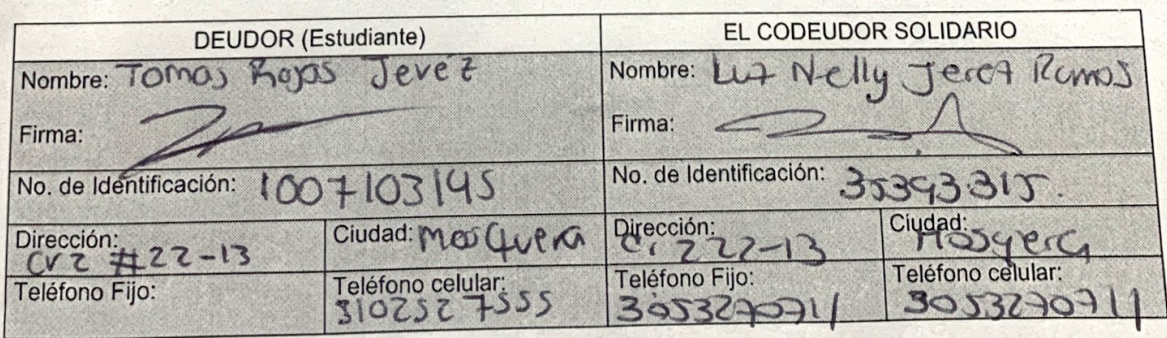 DEUDOR (Estudiante)
EL CODEUDOR SOLIDARIO
Nombre: Tomas Rojas Jeréz
Nombre: Luz Nelly Jerez Ramos
Firma:
Firma:
No. de Identificación: 1007103145
No. de Identificación: 35393315.
Dirección:
Cr 2 #22-13
Ciudad: Mosquera
Dirección:
Cr 2 22-13
Ciudad:
Mosquera
Teléfono Fijo:
Teléfono celular:
3102527555
Teléfono Fijo:
3053270711
Teléfono celular:
3053270711